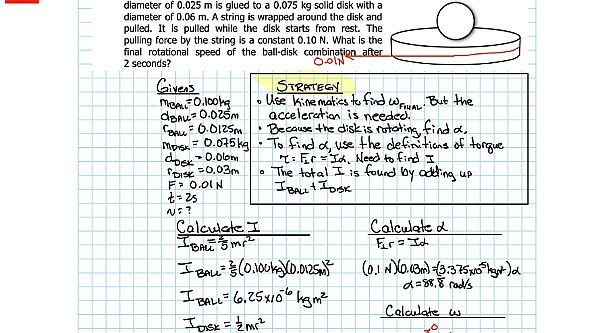 diameter of 0.025 m is glued to a 0.075 kg solid disk with a
diameter of 0.06 m. A string is wrapped around the disk and
pulled. It is pulled while the disk starts from rest. The
pulling force by the string is a constant 0.10 N. What is the
final rotational speed of the ball-disk combination after
2 seconds?
0.01N
Givens
mBALL=0.100kg
dBALL=0.025m
rBALL=0.0125m
mDISK=0.075kg
dDISK=0.06m
rDISK=0.03m
F=0.01N
t=2s
N=?
STRATEGY
• Use kinematics to find ωFINAL. But the
acceleration is needed.
• Because the disk is rotating, find α.
• To find α, use the definitions of torque
τ=F⊥r=Iα. Need to find I
• The total I is found by adding up
IBALL+IDISK
Calculate I
IBALL=2/5mr²
IBALL=2/5(0.100kg)(0.0125m)²
IBALL=6.25x10⁻⁶ kgm²
IDISK=1/2mr²
Calculate α
F⊥r=Iα
(0.1N)(0.03m)=(3.375x10⁻⁵kgm²)α
α=88.8 rad/s
Calculate ω